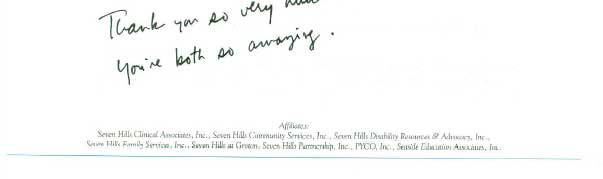 Thank you so very
You're both so amazing.
Affiliates:
Seven Hills Clinical Associates, Inc., Seven Hills Community Services, Inc., Seven Hills Disability Resources & Advocacy, Inc.,
Seven Hills Family Services, Inc., Seven Hills at Groton, Seven Hills Partnership, Inc., PYCO, Inc., Seaside Education Associates, Inc.